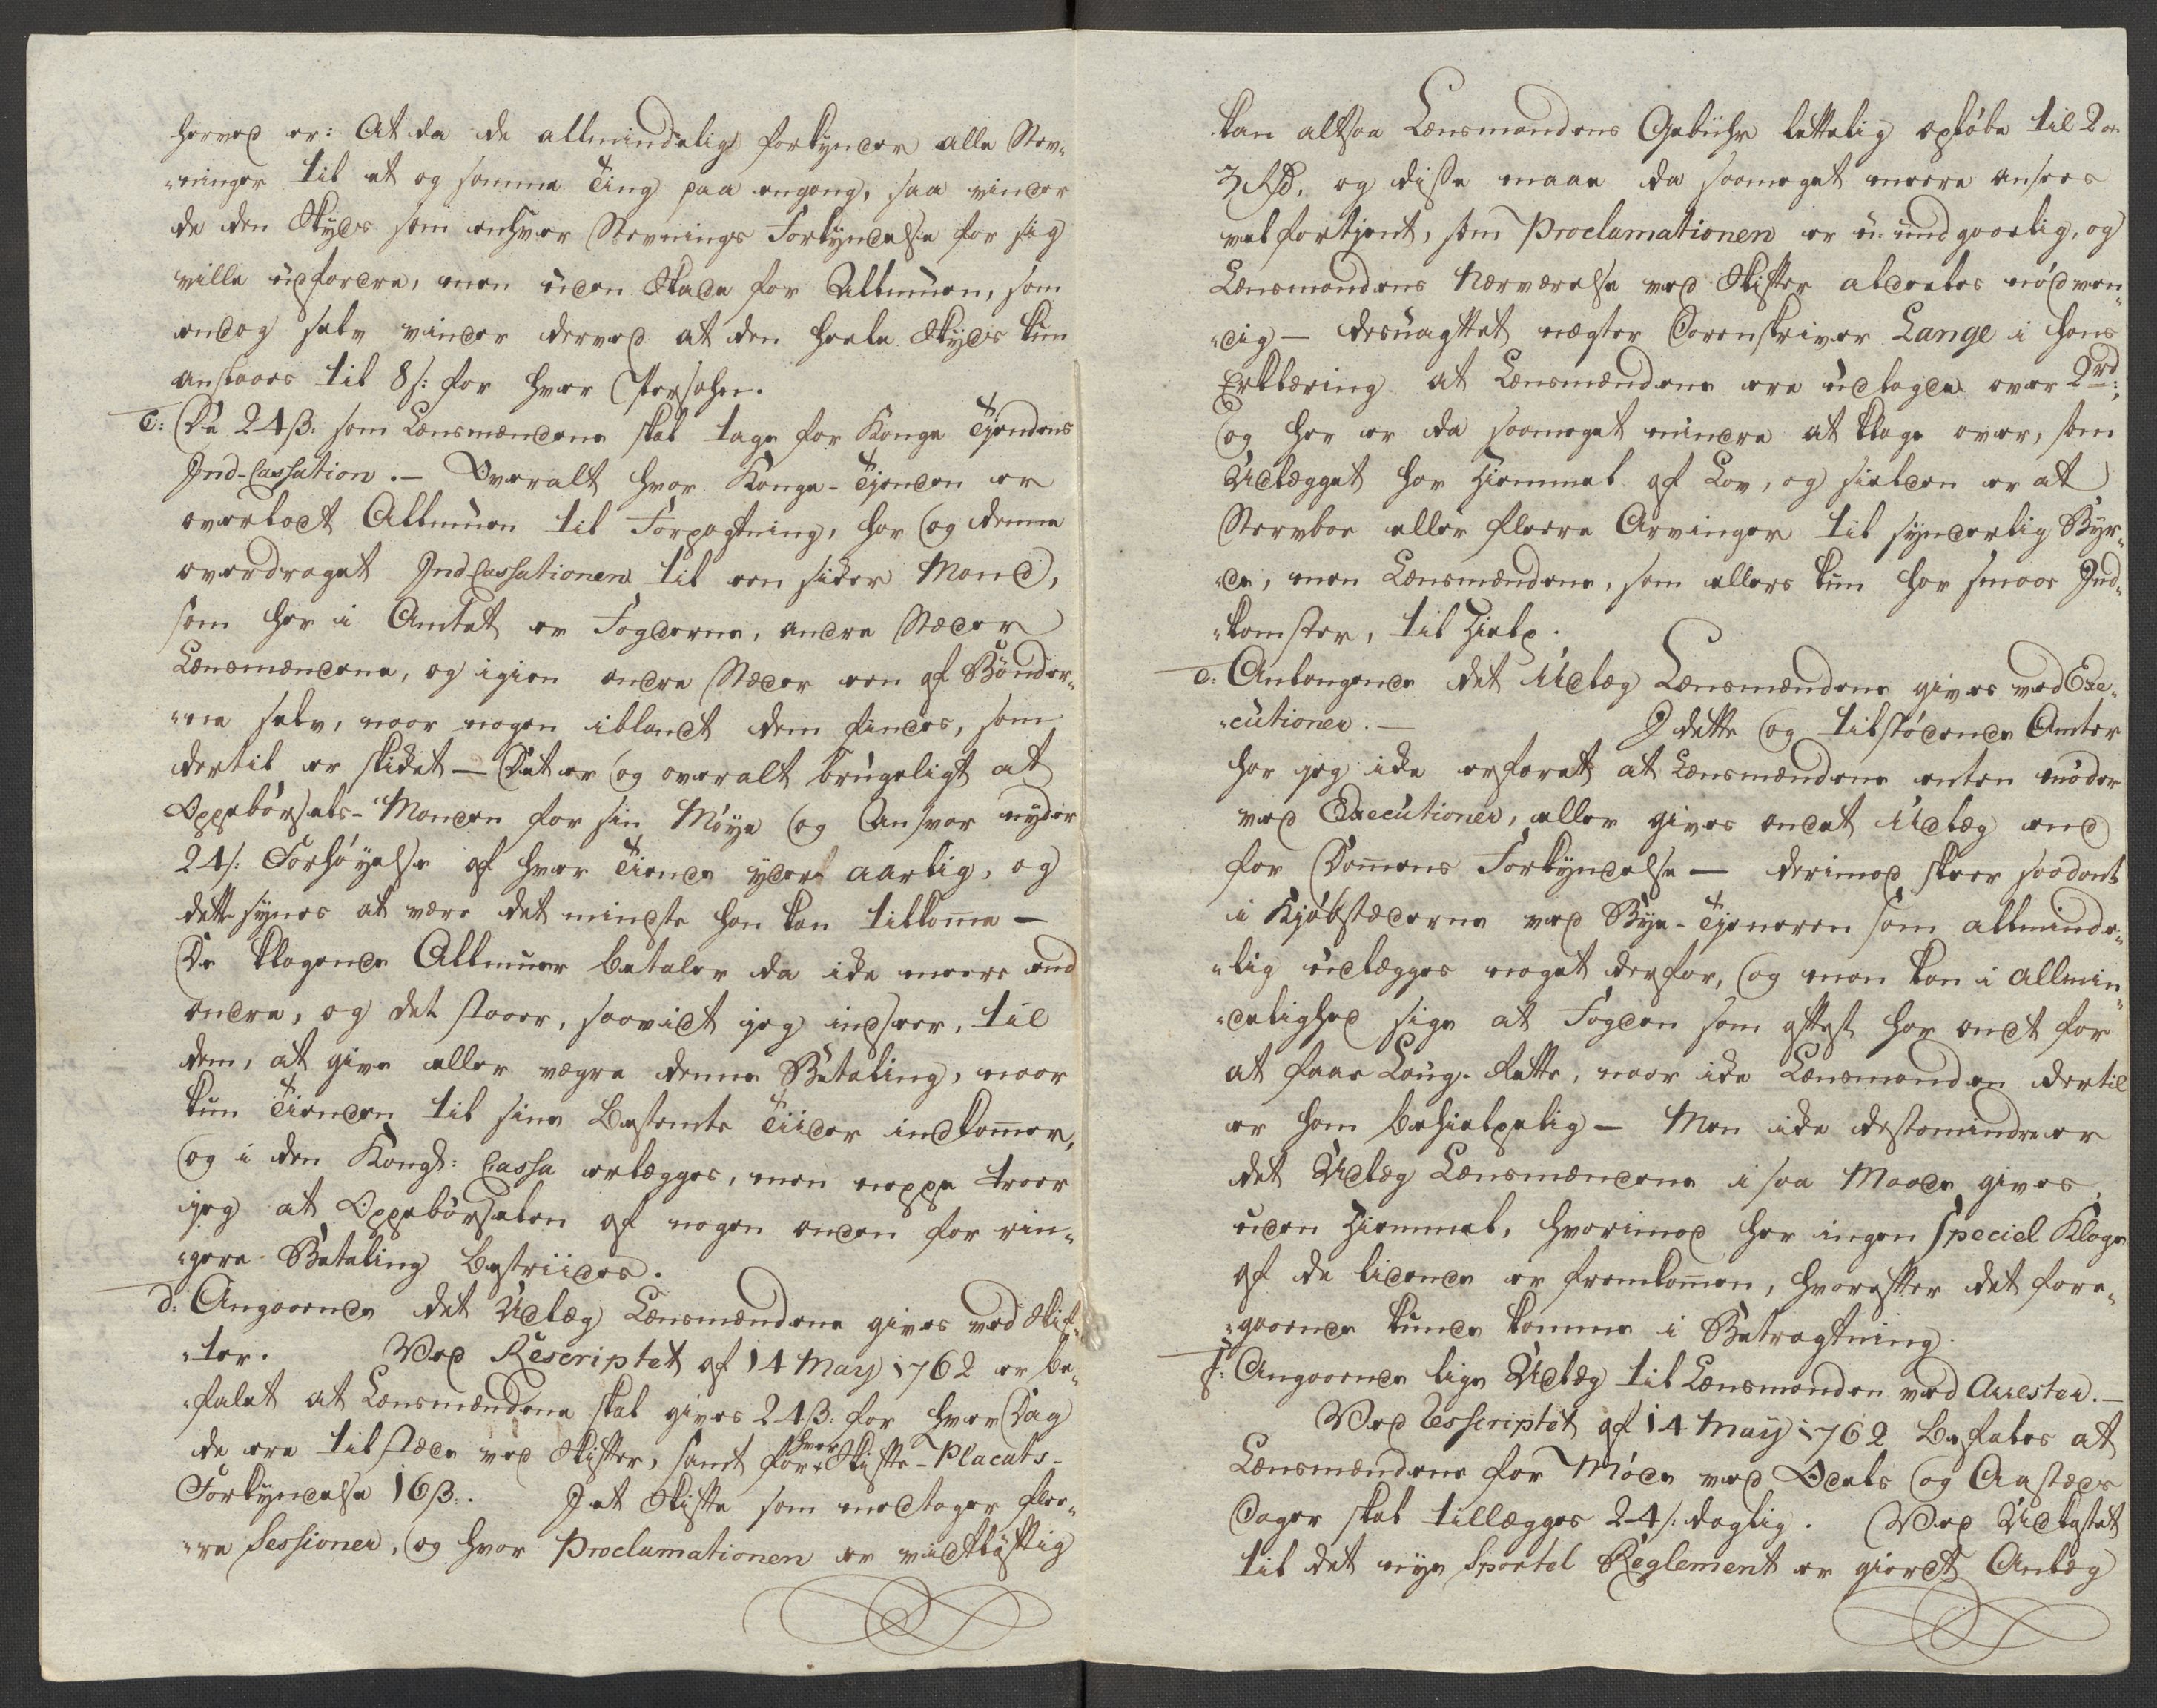 herved er: At da de allmindelig forkynder alle Stev-
-ninger til et og samme Ting paa engang, saa vinder
de den Skyds som enhver Stevnings Forkyndelse for sig
ville udfordre, men uden Skade for Allmuen, som
endog selv vinder derved at den heele Skyds kun
anslaaes til 8 s: for hver Persohn.
c: De 24 ß: som Lænsmændene skal tage for Konge Tjendens
Ind-Cassation. - Overalt hvor Konge-Tjenden er
overladt Allmuen til Forpagtning, har og denne
overdraget IndCassationen til een sikker Mand,
som her i Amtet er Fogderne, andre Stæder
Lænsmændene, og igien andre Stæder een af Bönder-
-ne selv, naar nogen iblandt dem findes, som
dertil er skikket - Det er og overalt brugeligt at
Oppebörsels-Manden for sin Möye og Ansvar nyder
24 s: Forhöyelse af hver Tiende yder aarlig, og
dette synes at være det mindste han kan tilkomme -
De klagende Allmuer betaler da ikke meere end
andre, og det staaer, saavidt jeg indseer, til
dem, at give eller vægre denne Betaling, naar
kun Tienden til sine bestemte Tiider indkommer,
og i den Kongl: Cassa erlægges, men neppe troer
jeg at Oppebörselen af nogen anden for rin-
-gere Betaling bestriides.
d: Angaaende det Udlæg Lænsmændene gives ved Skif-
-ter. Ved Rescriptet af 14 May 1762 er be-
-falet at Lænsmændene skal gives 24 ß: for hver Dag
de ere tilstæde ved Skifter, samt for hver Skifte-Placats-
Forkyndelse 16 ß:. I et Skifte som medtager flee-
-re Sessioner, og hvor Proclamationen er vidtlöftig
kan altsaa Lænsmandens Gebühr lettelig oplöbe til 2 a
3 Rd, og disse maae da saameget meere ansees
vel fortjent, som Proclamationen er u-undgaaelig, og
Lænsmandens Nærværelse ved Skifter aldeeles nödven-
-dig - desuagtet nægter Sorenskriver Lange i hans
Erklæring at Lænsmændene ere udlagde over 2 rd:
og her er da saameget mindre at klage over, som
Udlægget har Hiemmel af Lov, og sielden er at
Stervboe eller fleere Arvinger til synderlig Byr-
-de, men Lænsmændene, som ellers kun har smaae Ind-
-komster, til Hielp.
e: Anlangende det Udlæg Lænsmændene gives ved Exe-
-cutioner. - I dette og tilstödende Amter
har jeg ikke erfaret at Lænsmændene enten möder
ved Executioner, eller gives andet Udlæg end
for Dommens Forkyndelse - derimod skeer saadant
i Kjöbstæderne ved Bye-Tjeneren som allminde-
-lig udlægges noget derfor, og man kan i allmin-
-delighed sige at Fogden som oftest har ondt for
at faae Laug-Rette, naar ikke Lænsmanden dertil
er ham behielpelig - Men ikke destomindre er
det Udlæg Lænsmændene i saa Maade gives,
uden Hiemmel, hvorimod her ingen speciel Klage
af de lidende er fremkommen, hvorefter det fore-
-gaaende kunde komme i Betragtning.
f: Angaaende lige Udlæg til Lænsmanden ved Arrester. -
Ved Resscriptet af 14 May 1762 befales at
Lænsmændene for Möde ved Odels og Aasteds
Sager skal tillægges 24 s: daglig. Ved Udkastet
til det nye Sportel Reglement er giordt Anlæg